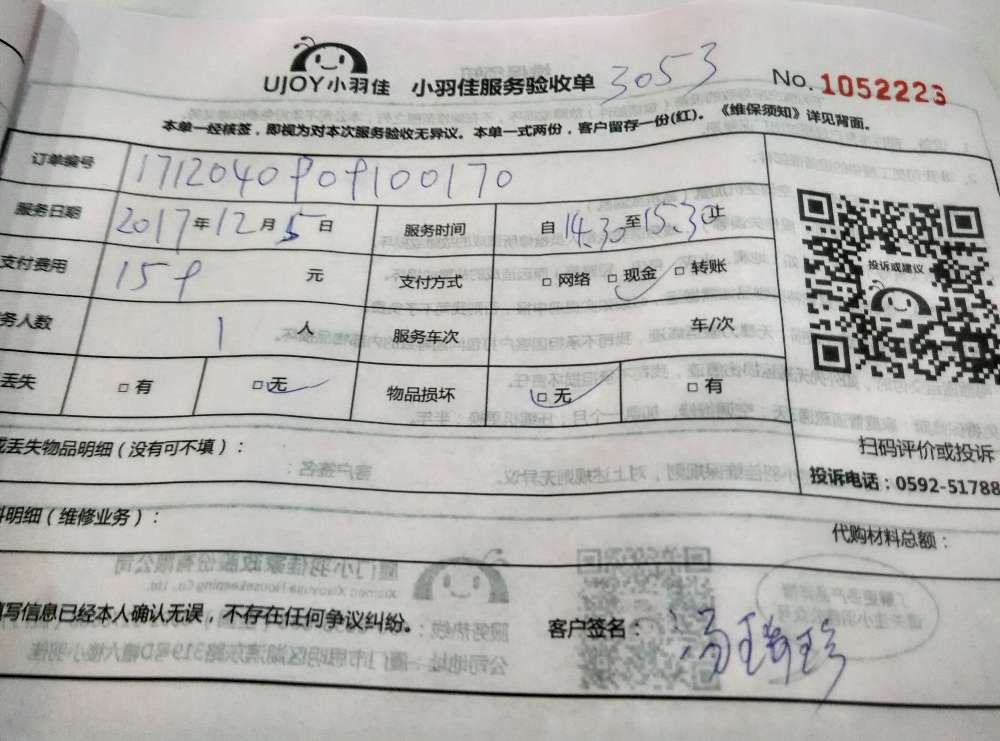 UJOY小羽佳 小羽佳服务验收单 3053 No. 1052223
本单一经核签，即视为对本次服务验收无异议。本单一式两份，客户留存一份(红)。《维保须知》详见背面。
订单编号 1712040909100170
服务日期 2017年12月5日 服务时间 自14.30至15.30止
支付费用 159 元 支付方式 □网络 □现金 □转账
务人数 1 人 服务车次 车/次
丢失 □有 □无 物品损坏 □无 □有
投诉或建议
扫码评价或投诉
投诉电话：0592-51788
或丢失物品明细（没有可不填）：
料明细（维修业务）： 代购材料总额：
填写信息已经本人确认无误，不存在任何争议纠纷。 客户签名：